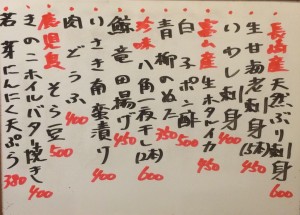 長崎産 天然ぶり刺身 600
生甘海老刺身(5本) 450
いわし刺身 400
富山産 生ホタルイカ 450
白子ポン酢 500
青柳のぬた 350
珍味 八角一夜干し(2本) 600
鯨竜田揚げ 450
いさき角煮漬け
肉どうふ 400
鹿児島 そら豆 500
きのこホイルバター焼き 400
若芽にんにく天ぷら 380